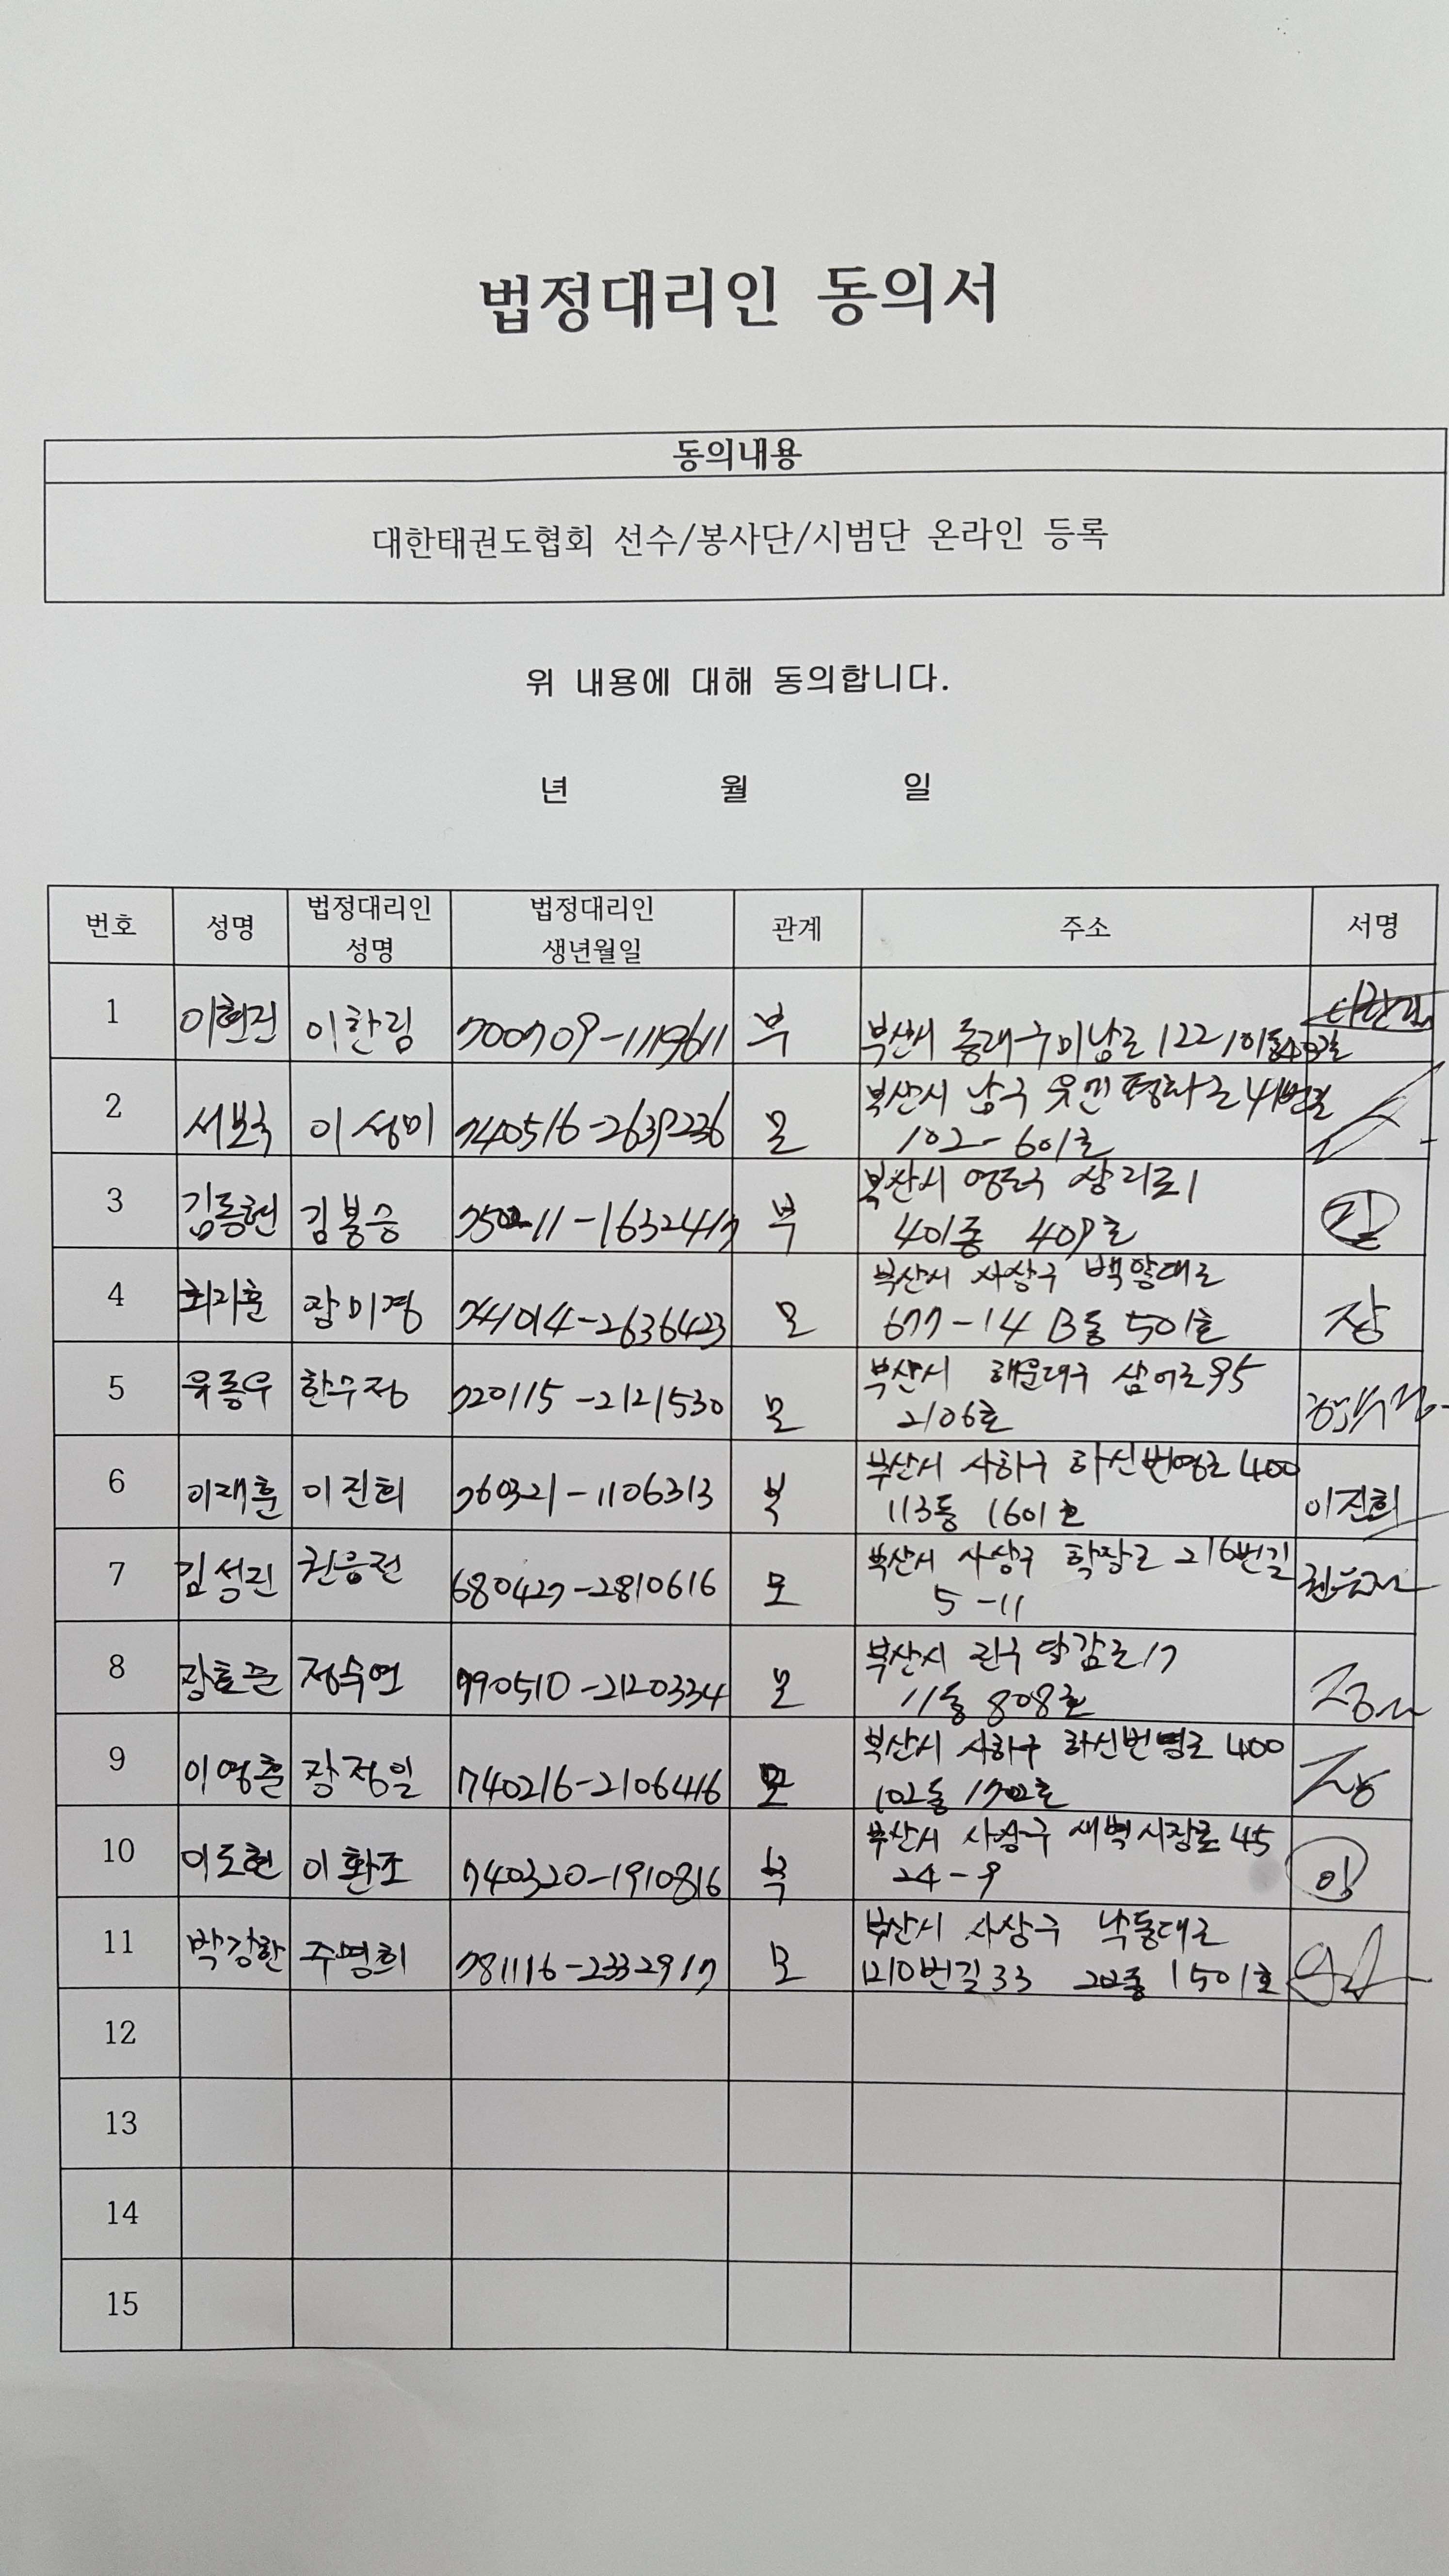 법정대리인 동의서
동의내용
대한태권도협회 선수/봉사단/시범단 온라인 등록
위 내용에 대해 동의합니다.
년 월 일
번호 성명 법정대리인 성명 법정대리인 생년월일 관계 주소 서명
1 이현진 이한림 700709-1119611 부 부산시 동래구 미남로 122
2 서보국 이성미 740516- 모 부산시 남구 유엔평화로 41번길
102-601호
3 김동현 김봉승 750211-1632417 부 부산시 영도구 상리로1
401동 409호
4 최지훈 장미경 741014-2636423 모 부산시 사상구 백양대로 장
677-14 B동 501호
5 유종우 한수정 720115-2121530 모 부산시 해운대구 삼어로95 한수정
2106호
6 이재훈 이진희 760321-1106313 부 부산시 사하구 하신번영로 400
113동 1601호 이진희
7 김성진 680427-2810616 모 부산시 사상구 학장로 216번길
5-11
8 장효준 정수연 790510-2120334 모 부산시 진구 당감로17
11동 808호
9 이영훈 장정일 740216-2106416 모 부산시 사하구 하신번영로 400 장
102동 1702호
10 이도현 이환조 740320-1910816 부 부산시 사상구 새벽시장로 45
24-9
11 박강한 주명희 781116-2332917 모 부산시 사상구 낙동대로
1210번길 33 1501호
12
13
14
15